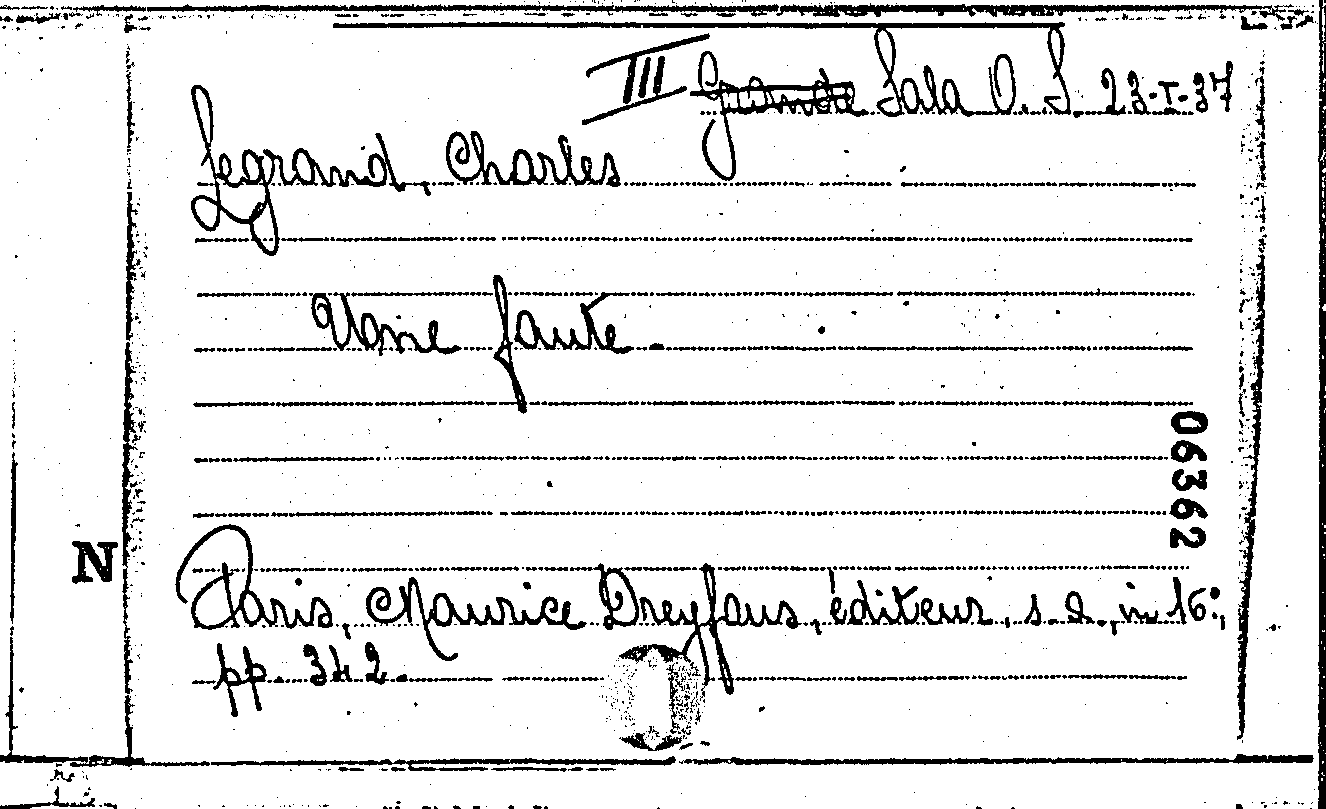 III Grande Sala O. S. 23-I-37
Legrand, Charles
Une faute.
06362
N
Paris, Maurice Dreyfous, éditeur, s. a., in 16°,
pp. 342.